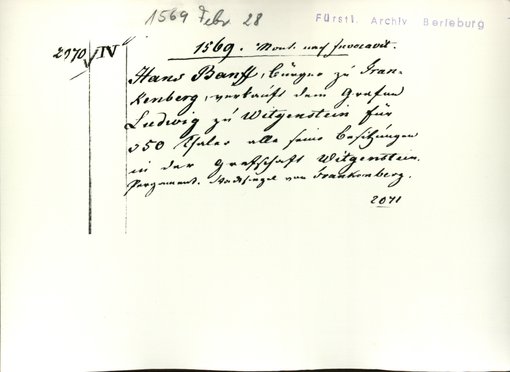 1569 Febr 28
Fürstl. Archiv Berleburg
2970 IV
1569. Mont. nach Invocavit.
Hans Banff, bürger zu Fran-
kenberg, verkauft dem Grafen
Ludwig zu Witgenstein für
350 Thaler alle seine besitzungen
in der Grafschaft Witgenstein.
Pergament. Stadtsiegel von Frankenberg.
2071